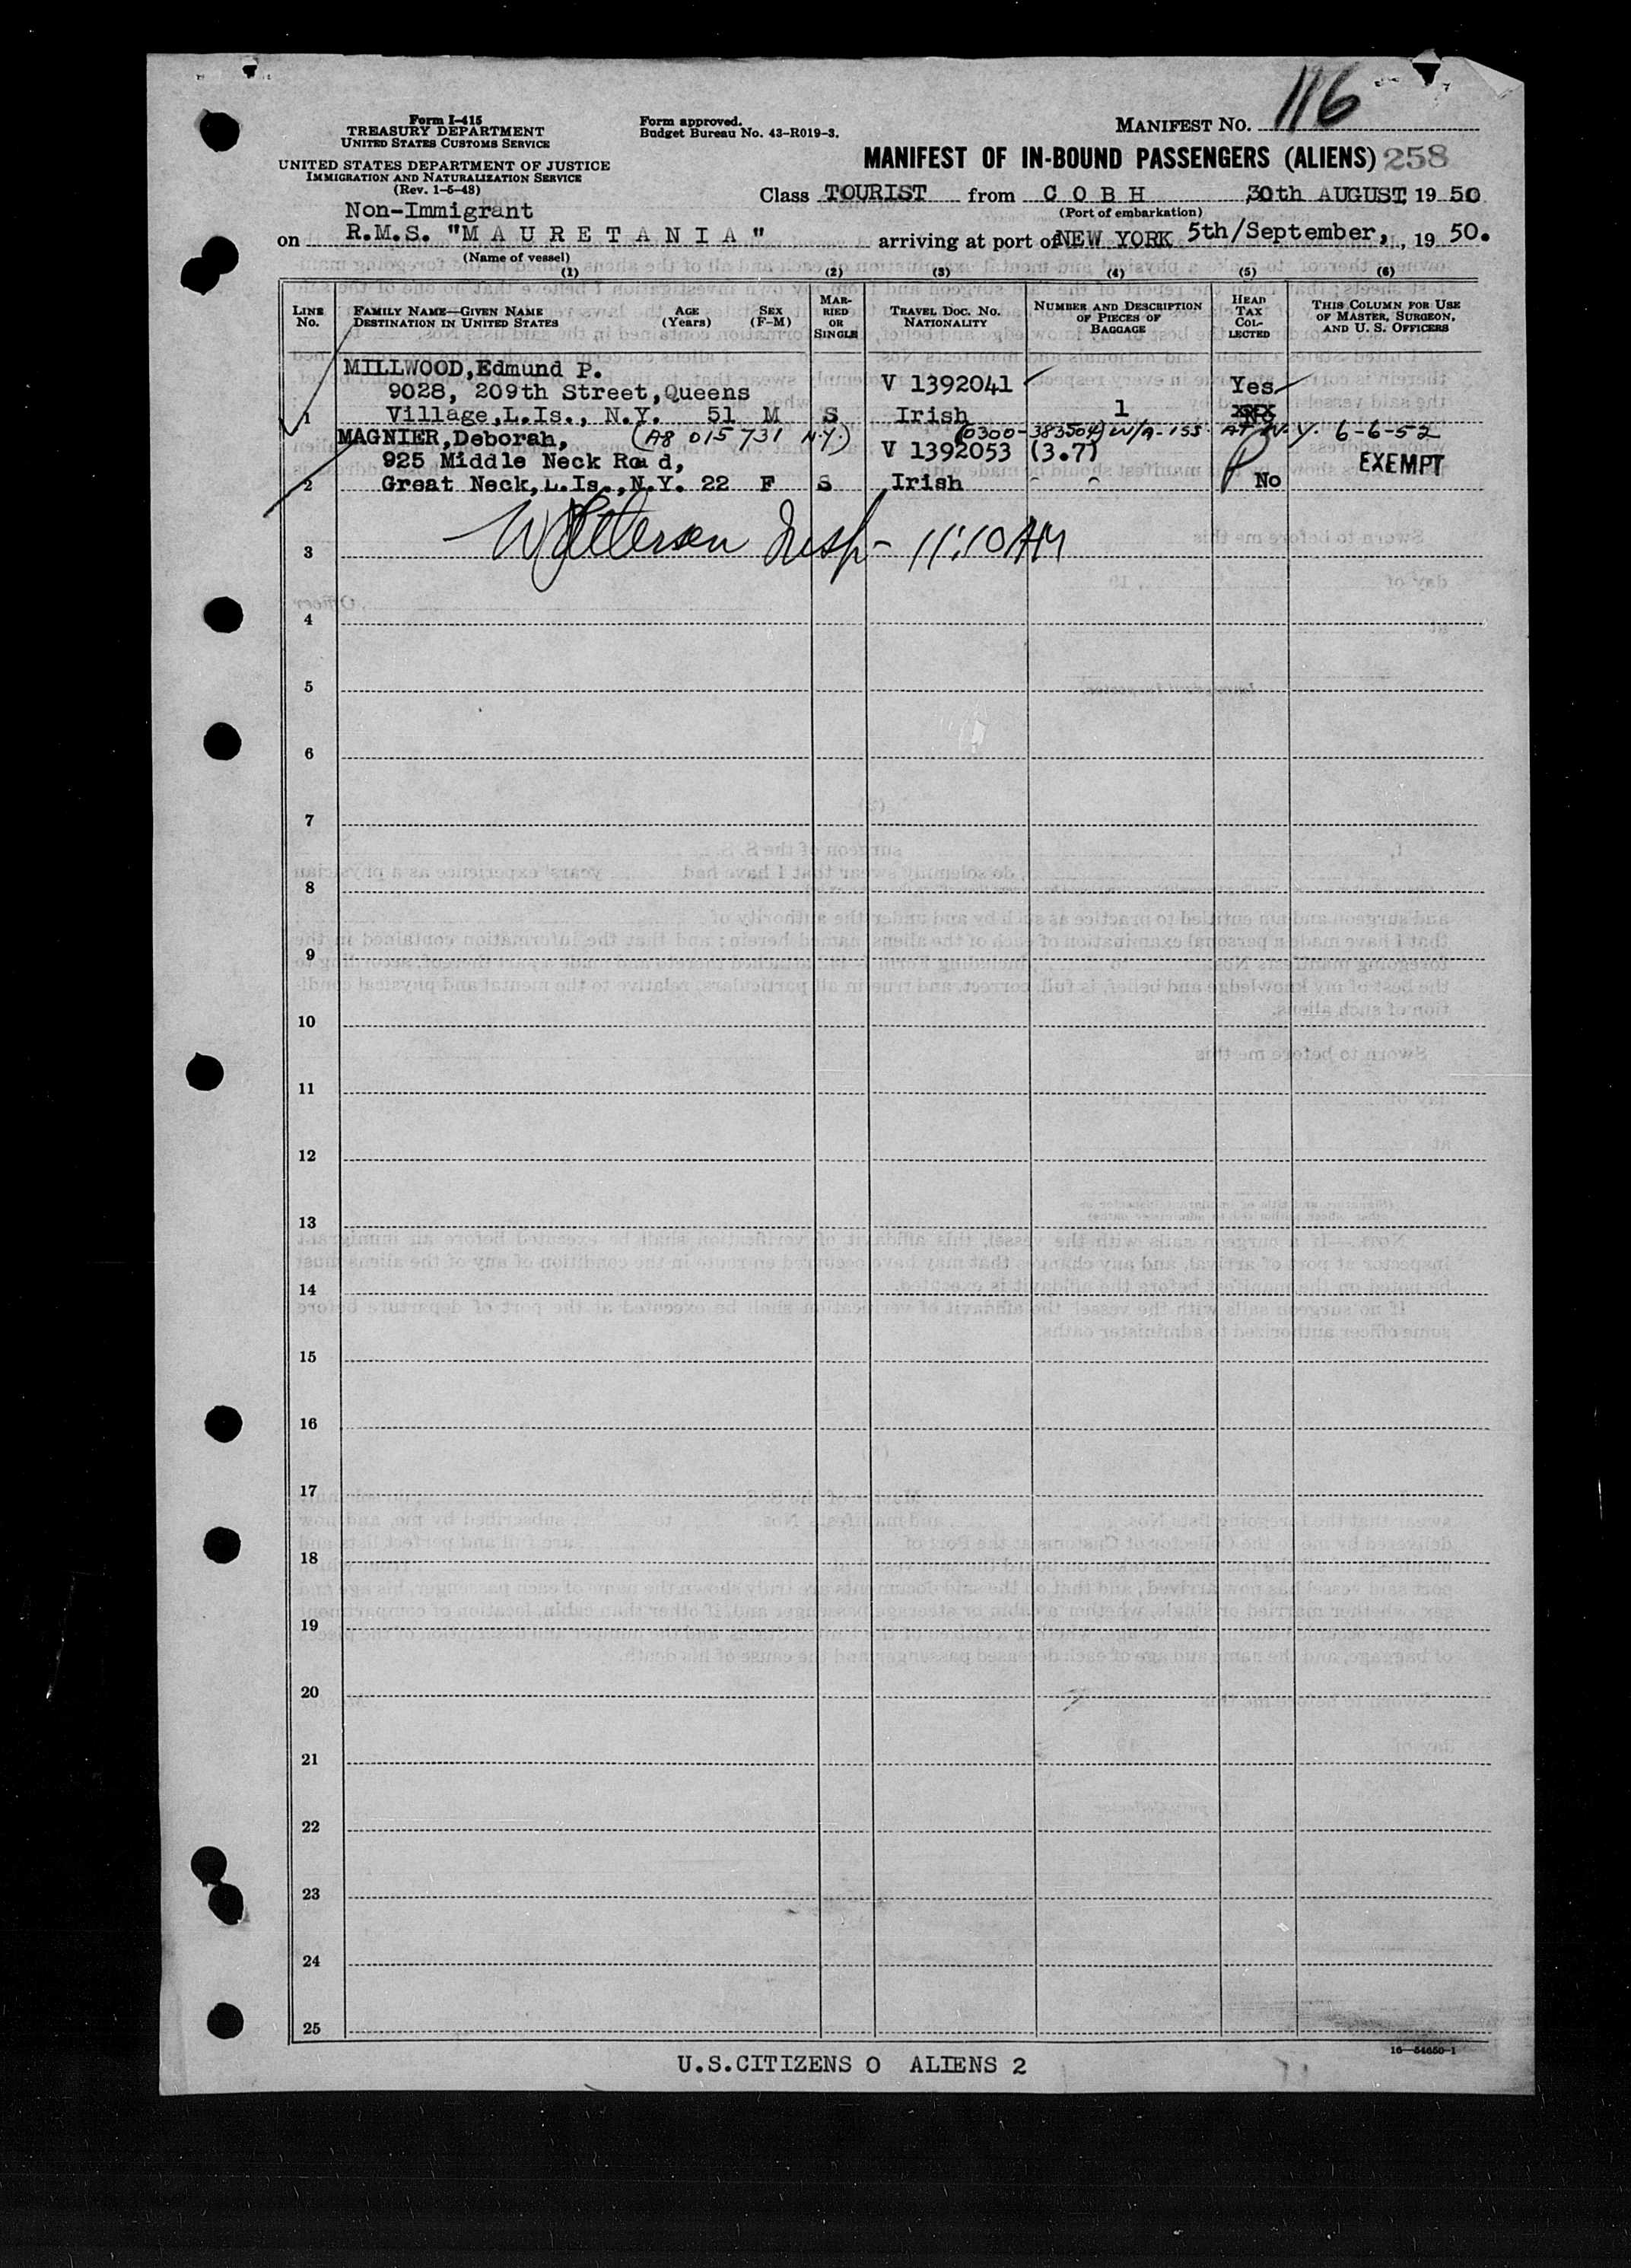 116
Form I-415
TREASURY DEPARTMENT
UNITED STATES CUSTOMS SERVICE
UNITED STATES DEPARTMENT OF JUSTICE
IMMIGRATION AND NATURALIZATION SERVICE
(Rev. 1-5-48)
Form approved.
Budget Bureau No. 43-R019-3.
MANIFEST NO.
MANIFEST OF IN-BOUND PASSENGERS (ALIENS) 258
Class TOURIST from C O B H 30th AUGUST, 19 50
(Port of embarkation)
Non-Immigrant
on R.M.S. "M A U R E T A N I A" arriving at port of NEW YORK 5th/September, , 19 50.
(Name of vessel)
(1) (2) (3) (4) (5) (6)
LINE No. FAMILY NAME—GIVEN NAME DESTINATION IN UNITED STATES AGE (Years) SEX (F-M) MARRIED OR SINGLE TRAVEL DOC. NO. NATIONALITY NUMBER AND DESCRIPTION OF PIECES OF BAGGAGE HEAD TAX COLLECTED THIS COLUMN FOR USE OF MASTER, SURGEON, AND U. S. OFFICERS
MILLWOOD,Edmund P.
9028, 209th Street,Queens V 1392041 Yes
1 Village,L.Is., N.Y. 51 M S Irish 1
MAGNIER,Deborah, (A8 015 731 N.Y.) (0300-383504) W/A-155 AT N.Y. 6-6-52
925 Middle Neck Road, V 1392053 (3.7) EXEMPT
2 Great Neck,L.Is.,N.Y. 22 F S Irish No
3 Insp- 11:10AM
4
5
6
7
8
9
10
11
12
13
14
15
16
17
18
19
20
21
22
23
24
25
16—54650-1
U.S.CITIZENS 0 ALIENS 2